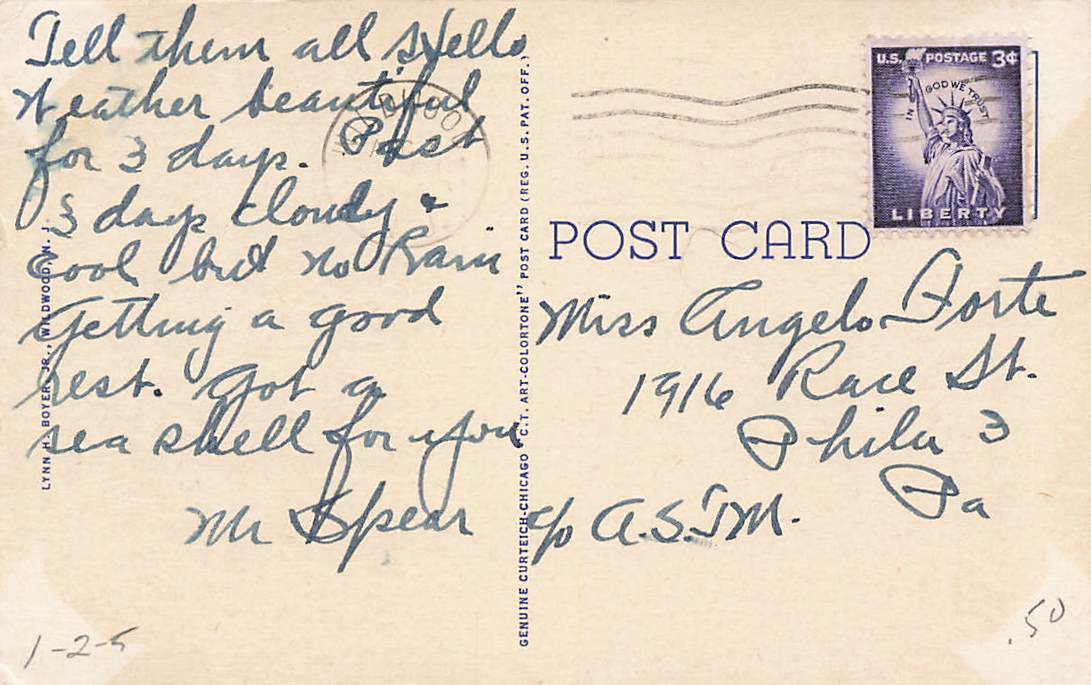 Tell them all Hello
Weather beautiful
for 3 days. Past
3 days cloudy &
Cool but no Rain
Getting a good
rest. Got a
sea shell for you
Mr Spear
1-2-5
LYNN H. BOYER, JR., WILDWOOD, N. J.
GENUINE CURTEICH-CHICAGO "C.T. ART-COLORTONE" POST CARD (REG. U.S. PAT. OFF.)
U.S. POSTAGE 3¢
IN GOD WE TRUST
LIBERTY
POST CARD
Miss Angelo Forte
1916 Race St.
Phila 3
Pa
c/o A.S.T.M.
.50